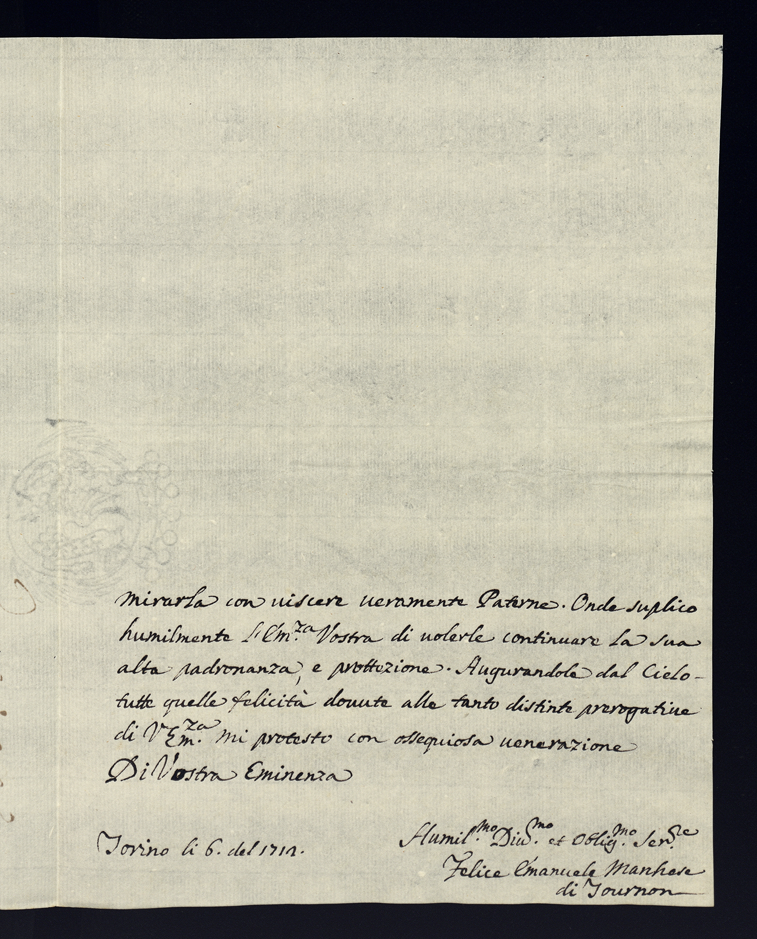 mirarla con viscere veramente Paterne. Onde suplico
humilmente l'Em.za Vostra di volerle continuare la sua
alta padronanza, e prottezione. Augurandole dal Cielo
tutte quelle felicità dovute alle tanto distinte prerogative
di V Em.za mi protesto con ossequiosa venerazione
Di Vostra Eminenza
Torino li 6. del
Humil.mo Div.mo et Oblig.mo Ser.re
Felice Emanuele Marchese
di Tournon